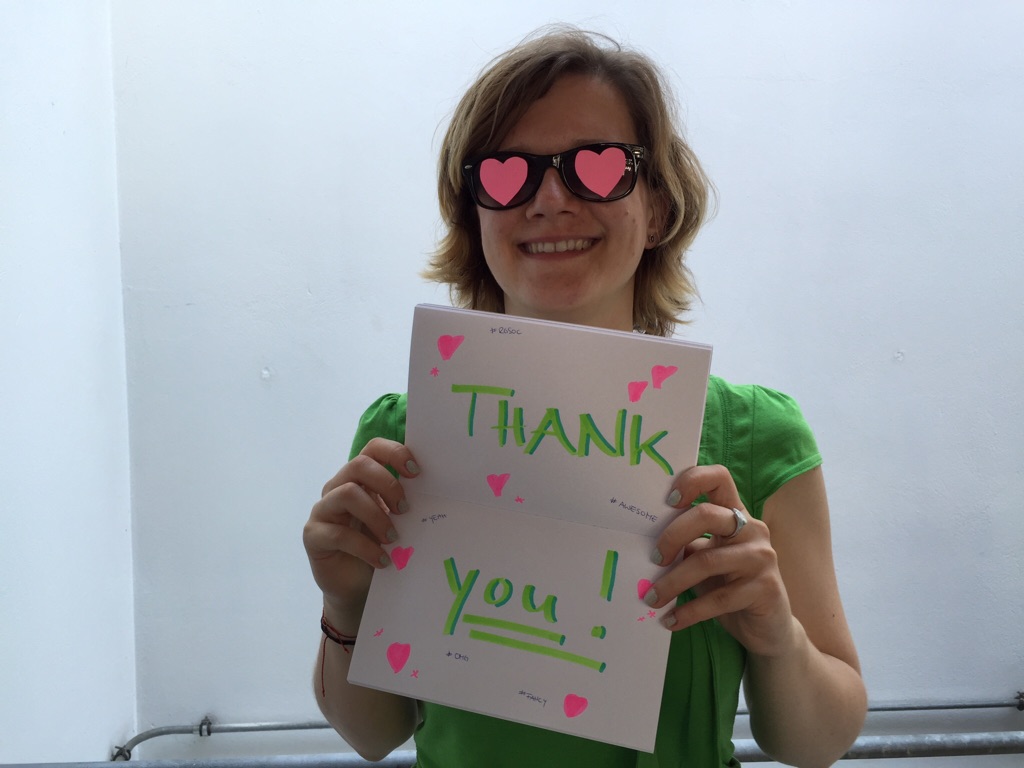 #RGSOC
THANK
#AWESOME
#YEAH
you!
#OMG
#FANCY